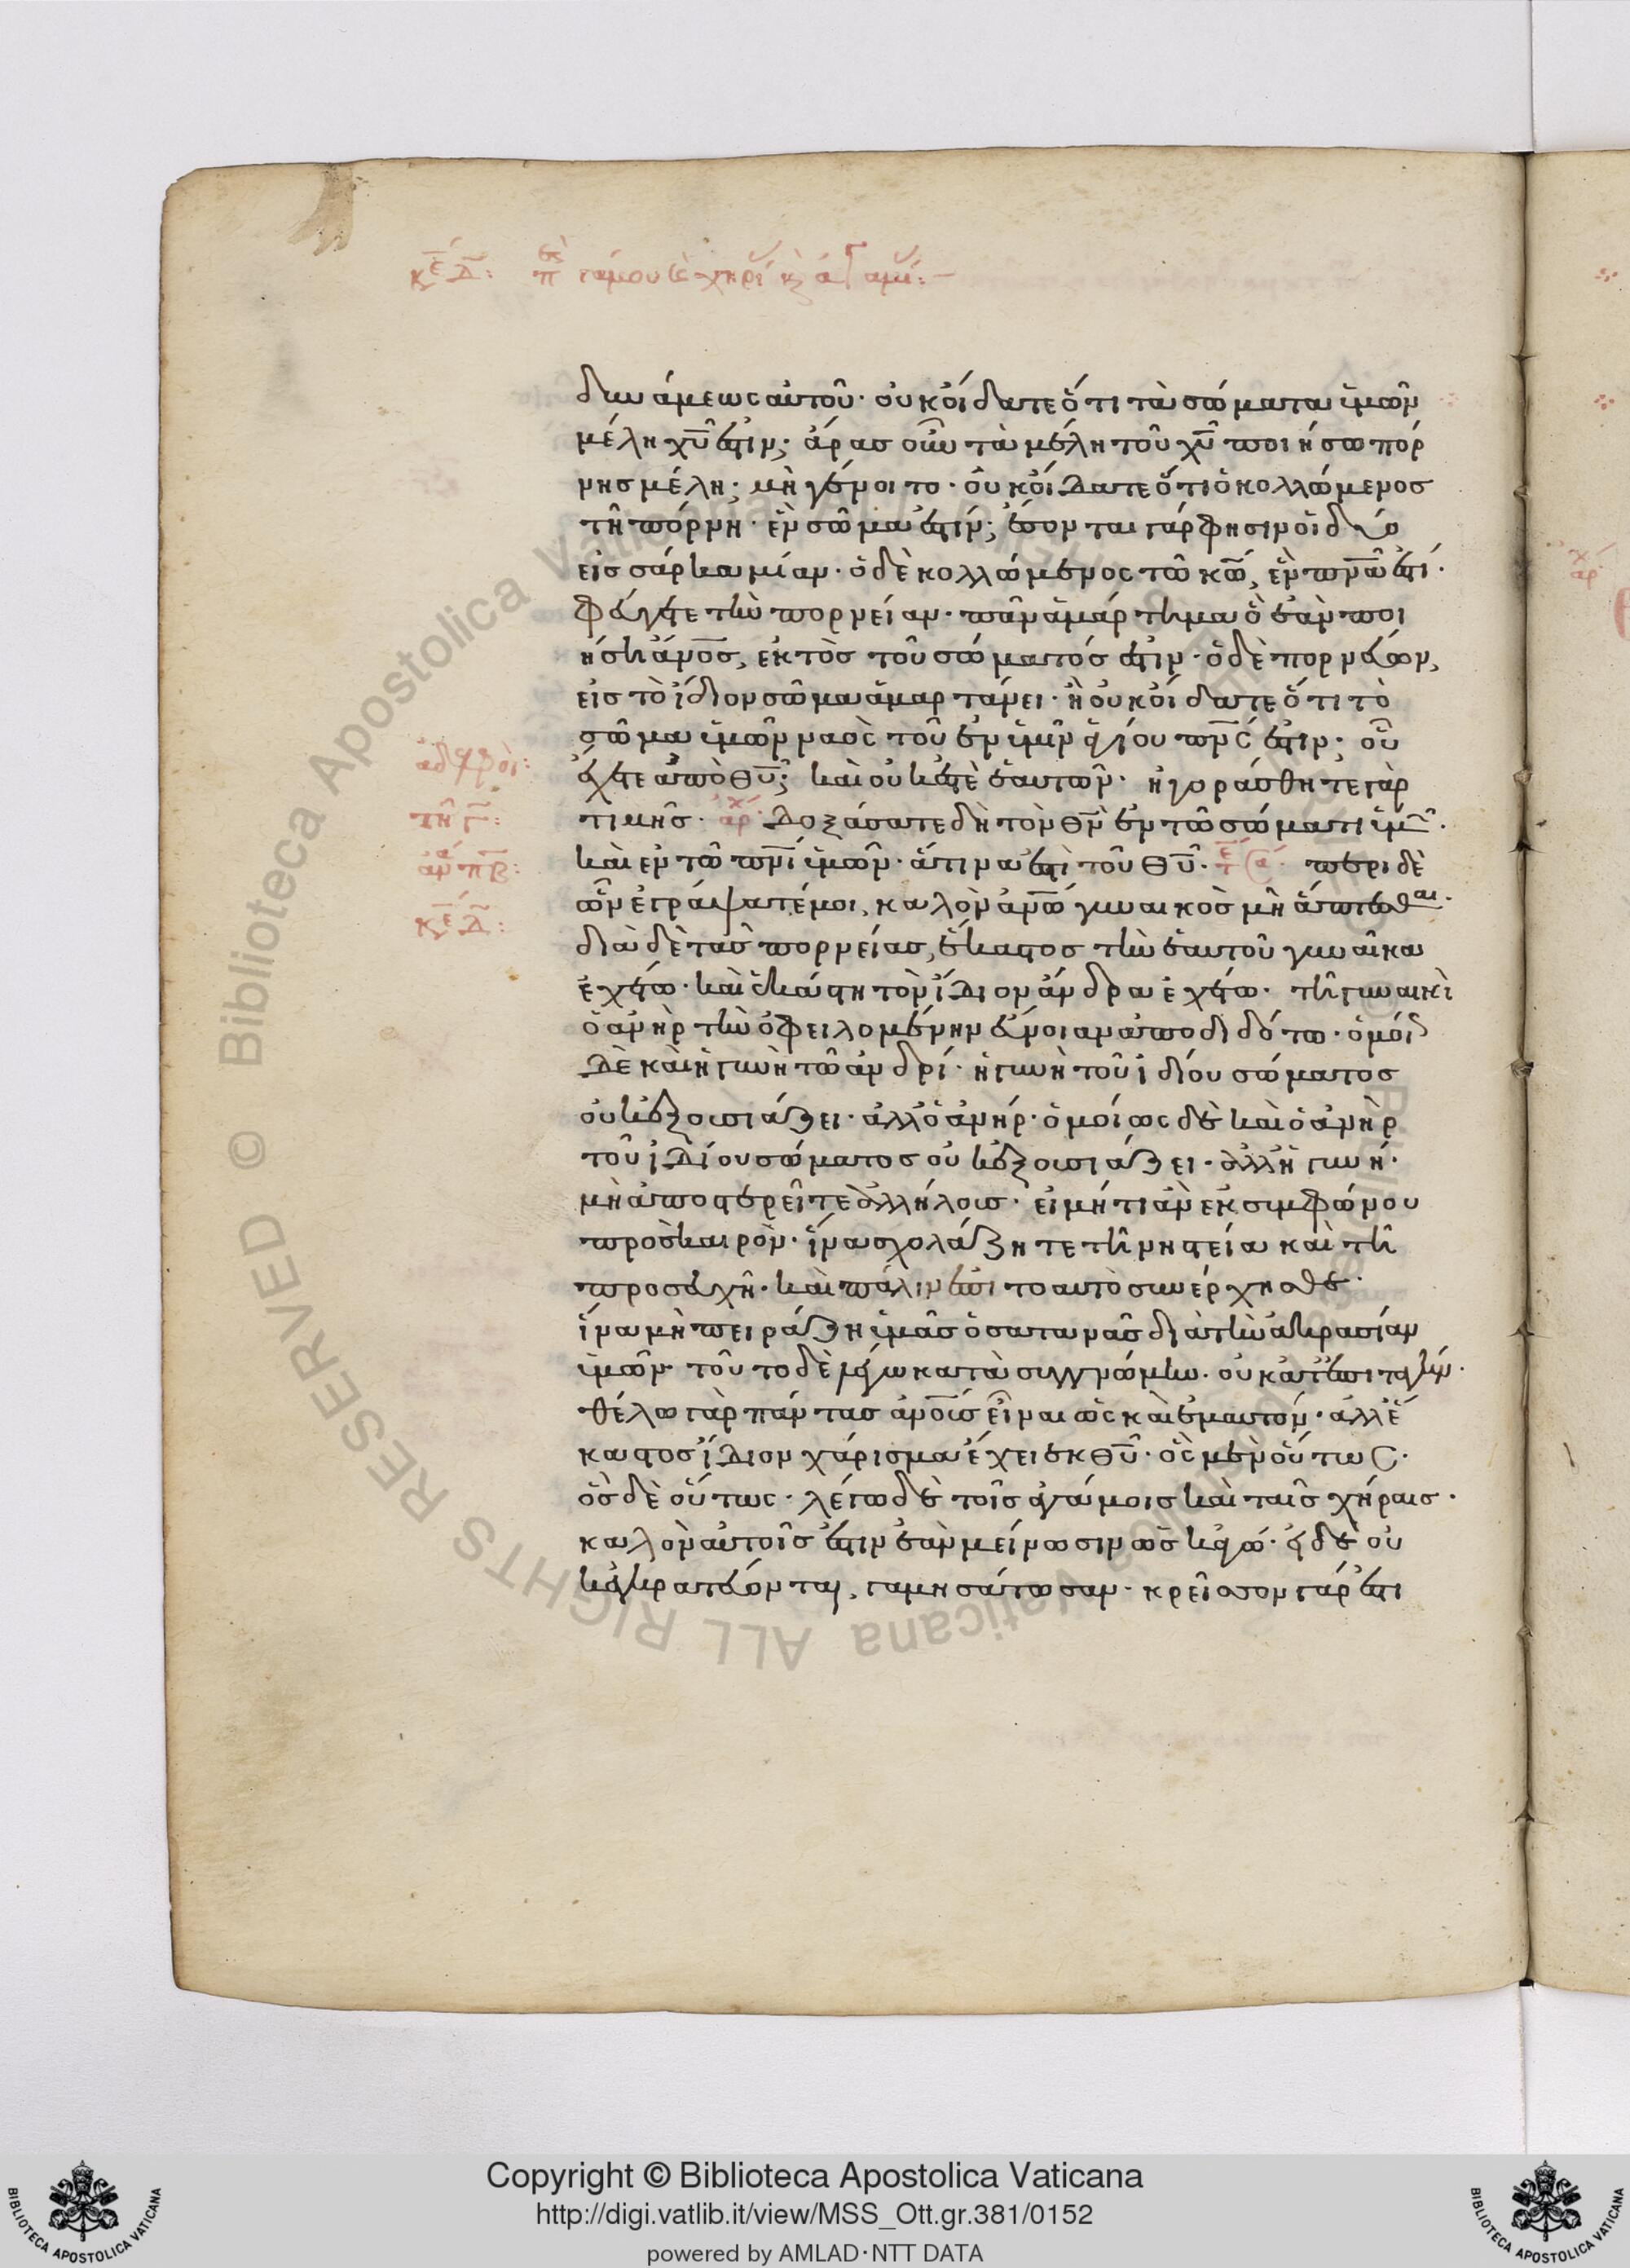 δυνάμεως αὐτοῦ· οὐκ οἴδατε ὅτι τὰ σώματα ὑμῶν
μέλη χ̅υ̅ ἐστιν; ἄρας οὖν τὰ μέλη τοῦ χ̅υ̅ ποιήσω πόρ
νης μέλη; μὴ γένοιτο· οὐκ οἴδατε ὅτι ὁ κολλώμενος
τῆ πόρνη· ἓν σῶμα ἐστίν; ἔσονται γάρ φησιν οἱ δύο
εἰς σάρκα μίαν· ὁ δὲ κολλώμενος τῶ κ̅ω̅, ἓν π̅ν̅α̅ ἐστι·
φεύγετε τὴν πορνείαν· πᾶν ἁμάρτημα ὃ ἐὰν ποι
ήση ἄ̅ν̅ο̅ς̅, ἐκτὸς τοῦ σώματός ἐστιν· ὁ δὲ πορνεύων,
εἰς τὸ ἴδιον σῶμα ἁμαρτάνει· ἢ οὐκ οἴδατε ὅτι τὸ
σῶμα ὑμῶν ναὸς τοῦ ἐν ὑμῖν ἁγίου π̅ν̅ς̅ ἐστιν· οὗ
ἀδελφοί: ἔχετε ἀπὸ θ̅υ̅; καὶ οὐκ ἐστὲ ἑαυτῶν· ἠγοράσθητε γὰρ
τῆ γ̅: τιμῆς· ἀρχ· δοξάσατε δὴ τὸν θ̅ν̅ ἐν τῶ σώματι ὑμῶν·
καὶ ἐν τῶ π̅ν̅ι̅ ὑμῶν· ἅτινα ἐστὶ τοῦ θ̅υ̅· περὶ δὲ
κε̅ δ̅: ὧν ἐγράψατέ μοι, καλὸν ἀ̅ν̅ω̅ γυναικὸς μὴ ἅπτεσθαι·
διὰ δὲ τὰς πορνείας, ἕκαστος τὴν ἑαυτοῦ γυναῖκα
ἐχέτω· καὶ ἑκάστη τὸν ἴδιον ἄνδρα ἐχέτω· τῆ γυναικὶ
ὁ ἀνὴρ τὴν ὀφειλομένην εὔνοιαν ἀποδιδότω· ὁμοί
δὲ καὶ ἡ γυνὴ τῶ ἀνδρί· ἡ γυνὴ τοῦ ἰδίου σώματος
οὐκ ἐξουσιάζει· ἀλλ' ὁ ἀνήρ· ὁμοίως δὲ καὶ ὁ ἀνὴρ
τοῦ ἰδίου σώματος οὐκ ἐξουσιάζει· ἀλλ' ἡ γυνή·
μὴ ἀποστερεῖτε ἀλλήλους· εἰ μή τι ἂν ἐκ συμφώνου
πρὸς καιρὸν· ἵνα σχολάζητε τῆ νηστεία καὶ τῆ
προσευχῆ· καὶ πάλιν ἐπὶ τὸ αὐτὸ συνέρχησθε·
ἵνα μὴ πειράζη ὑμᾶς ὁ σατανᾶς διὰ τὴν ἀκρασίαν
ὑμῶν· τοῦτο δὲ λέγω κατὰ συγγνώμην· οὐ κατ' ἐπιταγήν·
θέλω γὰρ πάντας ἀ̅ν̅ο̅υ̅ς̅ εἶναι ὡς καὶ ἐμαυτὸν· ἀλλ' ἕ
καστος ἴδιον χάρισμα ἔχει ἐκ θ̅υ̅· ὃς μὲν οὕτως·
ὃς δὲ οὕτως· λέγω δὲ τοῖς ἀγάμοις καὶ ταῖς χήραις·
καλὸν αὐτοῖς ἐστιν ἐὰν μείνωσιν ὡς κἀγώ· εἰ δὲ οὐκ
ἐγκρατεύονται, γαμησάτωσαν· κρεῖσσον γάρ ἐστι
Copyright © Biblioteca Apostolica Vaticana
http://digi.vatlib.it/view/MSS_Ott.gr.381/0152
powered by AMLAD·NTT DATA
© Biblioteca Apostolica Vaticana ALL RIGHTS RESERVED
BIBLIOTECA APOSTOLICA VATICANA
BIBLIOTECA APOSTOLICA VATICANA